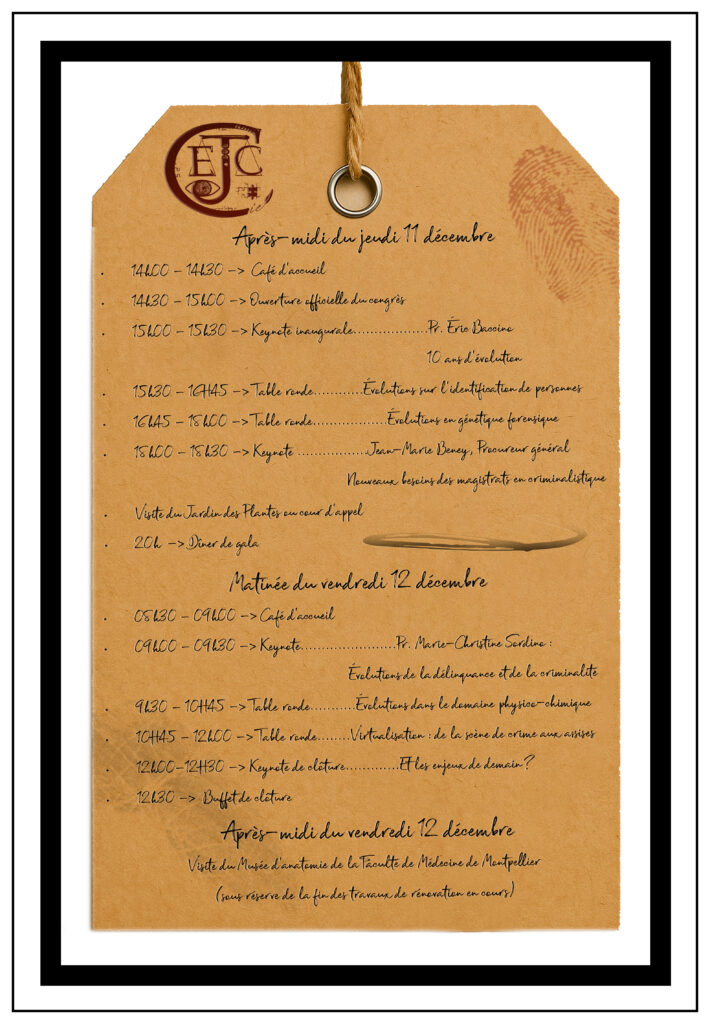 CEJC
Après-midi du jeudi 11 décembre
. 14h00 - 14h30 -> Café d'accueil
. 14h30 - 15h00 -> Ouverture officielle du congrès
. 15h00 - 15h30 -> Keynote inaugurale..................Pr. Éric Baccino
10 ans d'évolution
. 15h30 - 16H45 -> Table ronde............Évolutions sur l'identification de personnes
. 16h45 - 18h00 -> Table ronde.................Évolutions en génétique forensique
. 18h00 - 18h30 -> Keynote .................Jean-Marie Beney, Procureur général
Nouveaux besoins des magistrats en criminalistique
. Visite du Jardin des Plantes ou cour d'appel
. 20h -> Dîner de gala
Matinée du vendredi 12 décembre
. 08h30 - 09h00 -> Café d'accueil
. 09h00 - 09h30 -> Keynote.......................Pr. Marie-Christine Sordino :
Évolutions de la délinquance et de la criminalité
. 9h30 - 10H45 -> Table ronde...........Évolutions dans le domaine physico-chimique
. 10H45 - 12h00 -> Table ronde........Virtualisation : de la scène de crime aux assises
. 12h00-12H30 -> Keynote de clôture.............Et les enjeux de demain?
. 12h30 -> Buffet de clôture
Après-midi du vendredi 12 décembre
Visite du Musée d'anatomie de la Faculté de Médecine de Montpellier
(sous réserve de la fin des travaux de rénovation en cours)